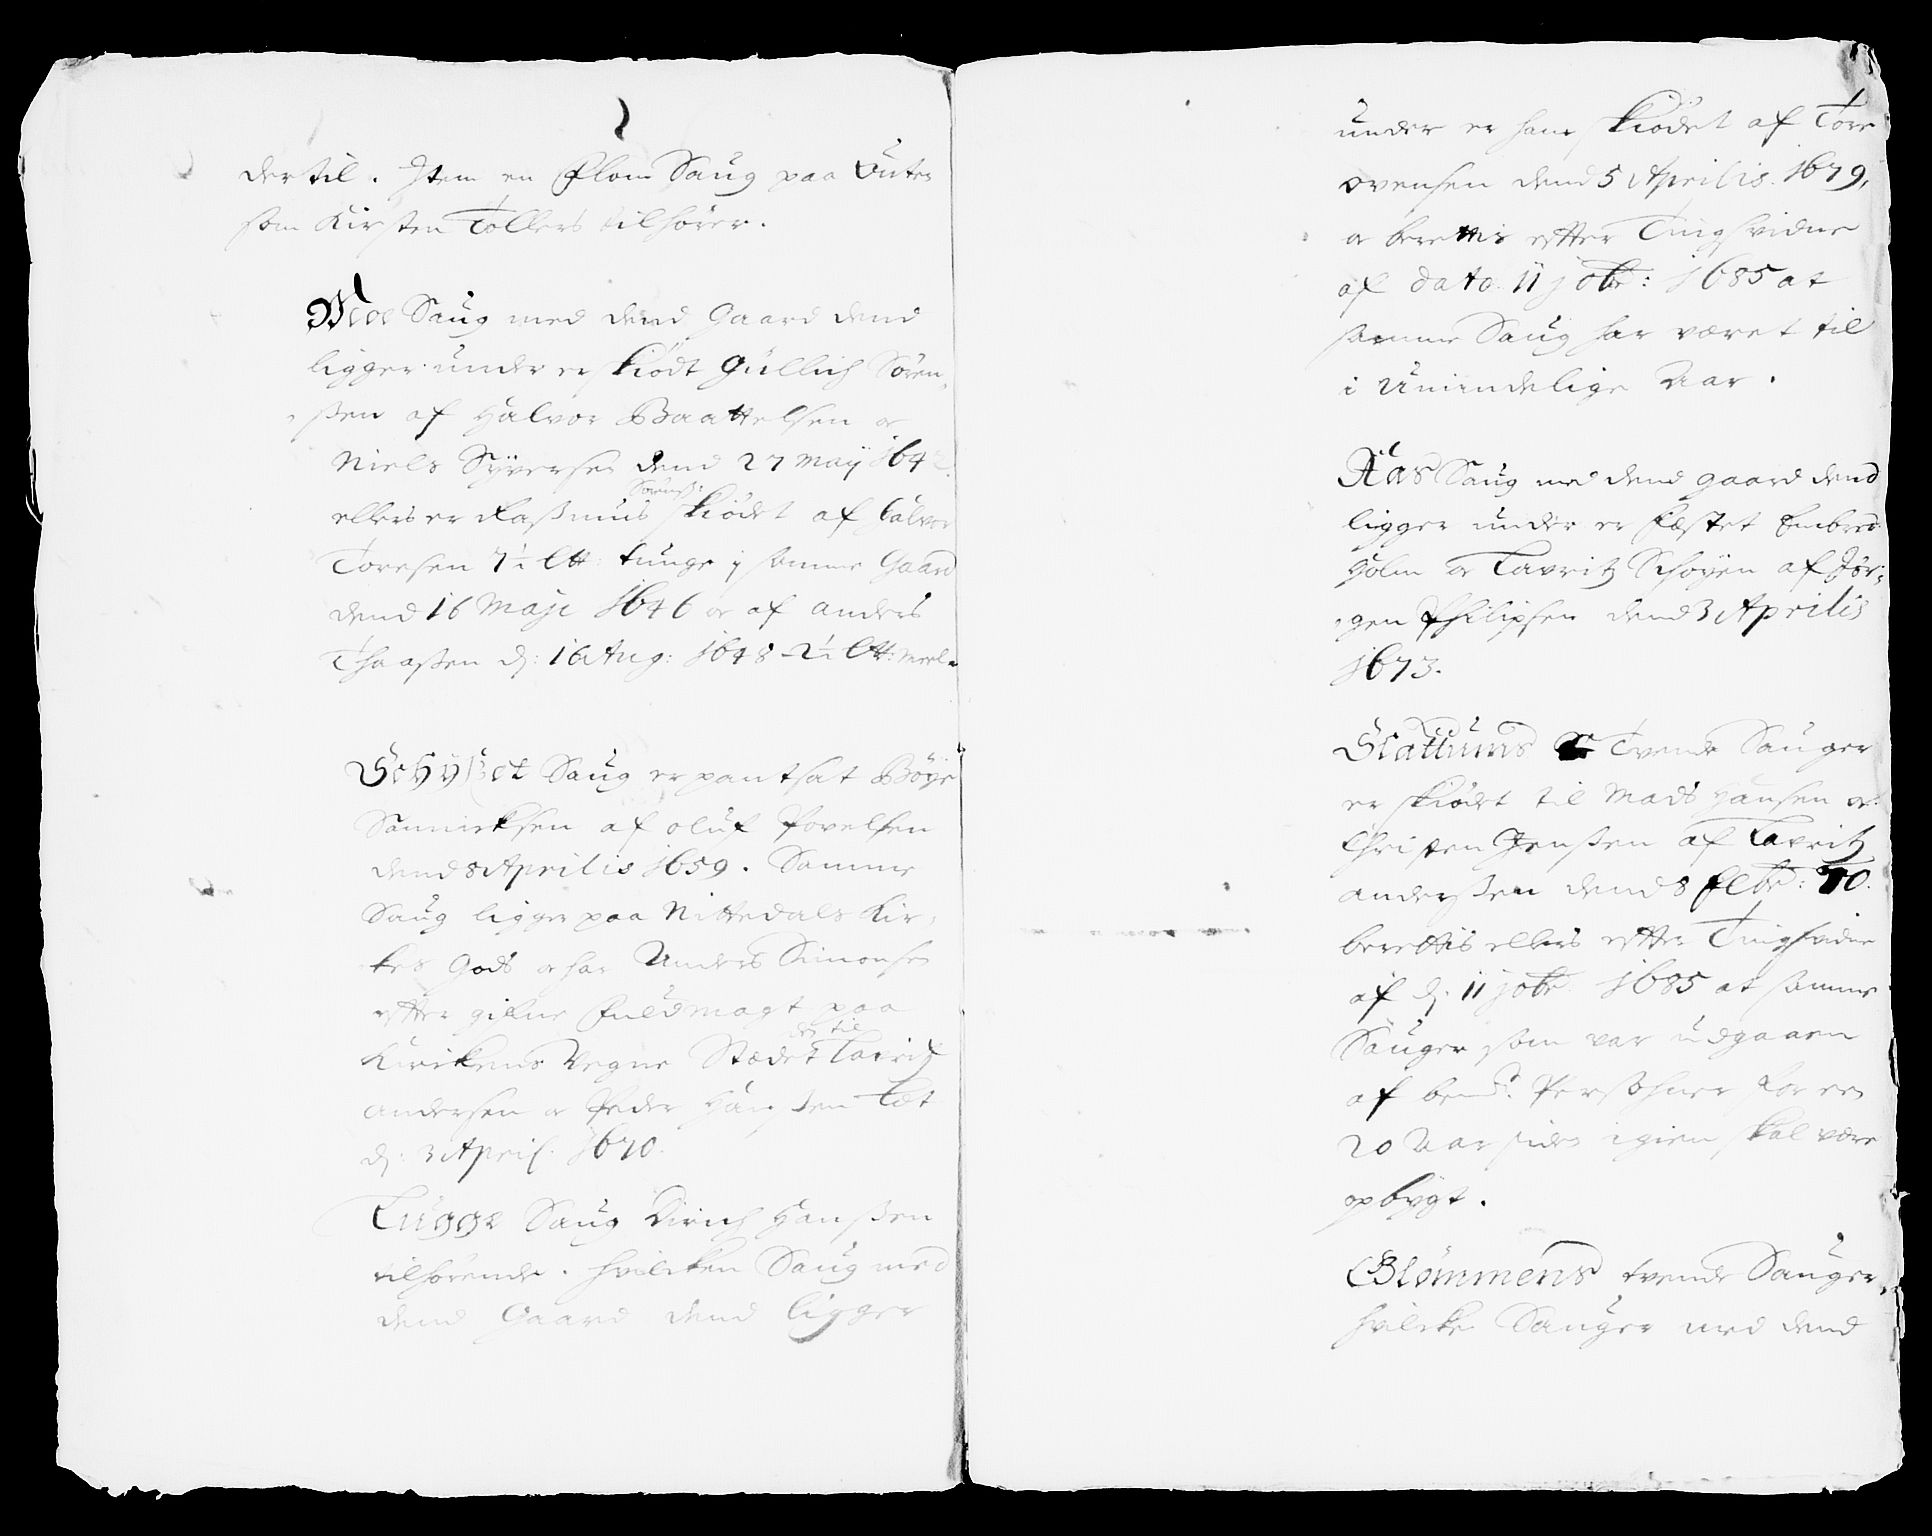 dertil. Item en Flom Saug paa
som Kirsten Tollers tilhører.
Moe Saug med dend Gaard dend
ligger under er skiødt Gullich Søren-
ßen af Halvor Baattelsen oc
Niels Syversen dend 27 Maij 164
ellers er Raßmus Sørenß: skiødet af Halvor
Toresen 7½ Ltt: tunge j samme Gaard
dend 16 Maji 1646 oc af Anders
Thoaßen d: 16 Aug: 1648 2½ Ltt: Meel
Schÿßet Saug er pantsat Böÿe
Sannicksen af Oluf Povelsen
dend 8 Aprilis 1659. Samme
Saug ligger paa Nittedals Kir-
kes Gods oc har Anders Simonsen
efter gifne Fuldmagt paa
Kirckens Vegne Stædet det til Lavritz
Andersen oc Peder Hanssen
d: 3 April. 1670.
Lugge Saug Dirich Hanßen
tilhørende. hvilcken Saug med
dend Gaard dend ligger
under er ham skiødet af Tore
Ovensen dend 5 Aprilis. 1679,
oc berettis efter Tingsvidne
af dato 11 jobr: 1685 at
samme Saug har været til
i Umindelige Aar.
Aas Saug med dend gaard dend
ligger under er fæstet Embret
Holm oc Lavritz Schøyen af Jör-
gen Philipsen dend 3 Aprilis
1673.
Slattums Tvende Sauger
er skiødet til Mads Hansen oc
Christen Jenßen af Lavritz
Anderßen dend 8 Febr: 70.
berettis ellers efter Tingsvidne
af d: 11 jobr. 1685 at samme
Sauger som var udgaaen
af bend.te Persohner for en
20 Aar siden igien skal være
opbygt.
Glommens tvende Sauger
hvilcke Sauger med dend